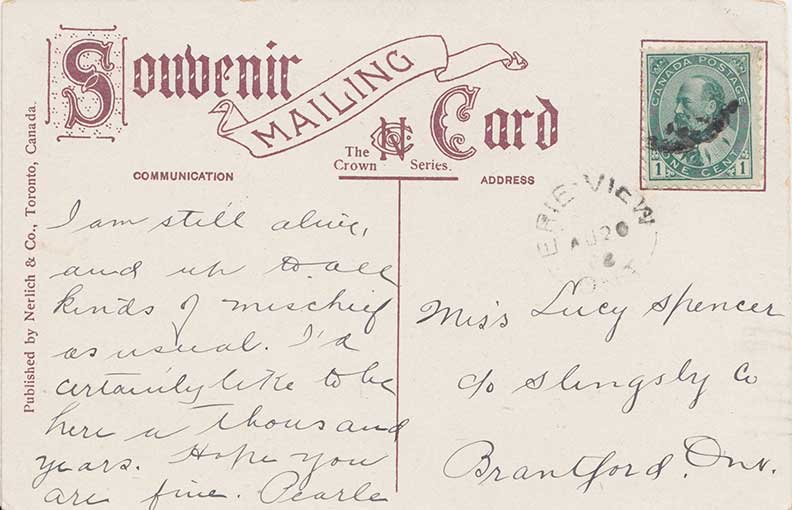 Souvenir
MAILING
Card
The Crown Series.
COMMUNICATION
ADDRESS
Published by Nerlich & Co., Toronto, Canada.
CANADA POSTAGE
ONE CENT
1 1
ERIE VIEW
AU 20
ONT
I am still alive,
and up to all
kinds of mischief
as usual. I'd
certainly like to be
here a thousand
years. Hope you
are fine. Pearle
Miss Lucy Spencer
c/o Slingsby Co
Brantford, Ont.